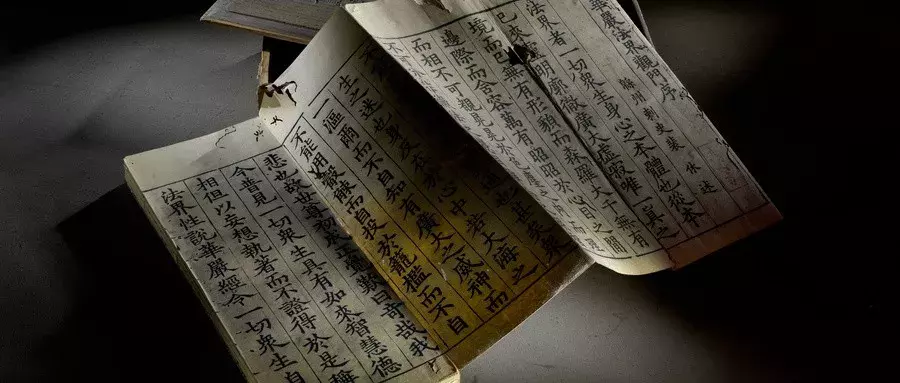 嚴法界觀門序
綿州刺史裴休述
法界者一切衆生身心之本體也從本
已來靈明廓徹廣大虛寂唯一真之
境而已無有形貌而森羅大千無有
邊際而含容萬有昭昭於心目之間
而相不可覩晃晃於
通也甚矣衆
生之迷也身反在於心中若大海之
一漚爾而不自知有廣大之威神而
不能用觳觫而自投於籠檻而不自
悲也故世尊初成正覺歎曰奇哉我
今普見一切衆生具有如來智慧德
相但以妄想執著而不證得於是稱
法界性說華嚴經令一切衆生自